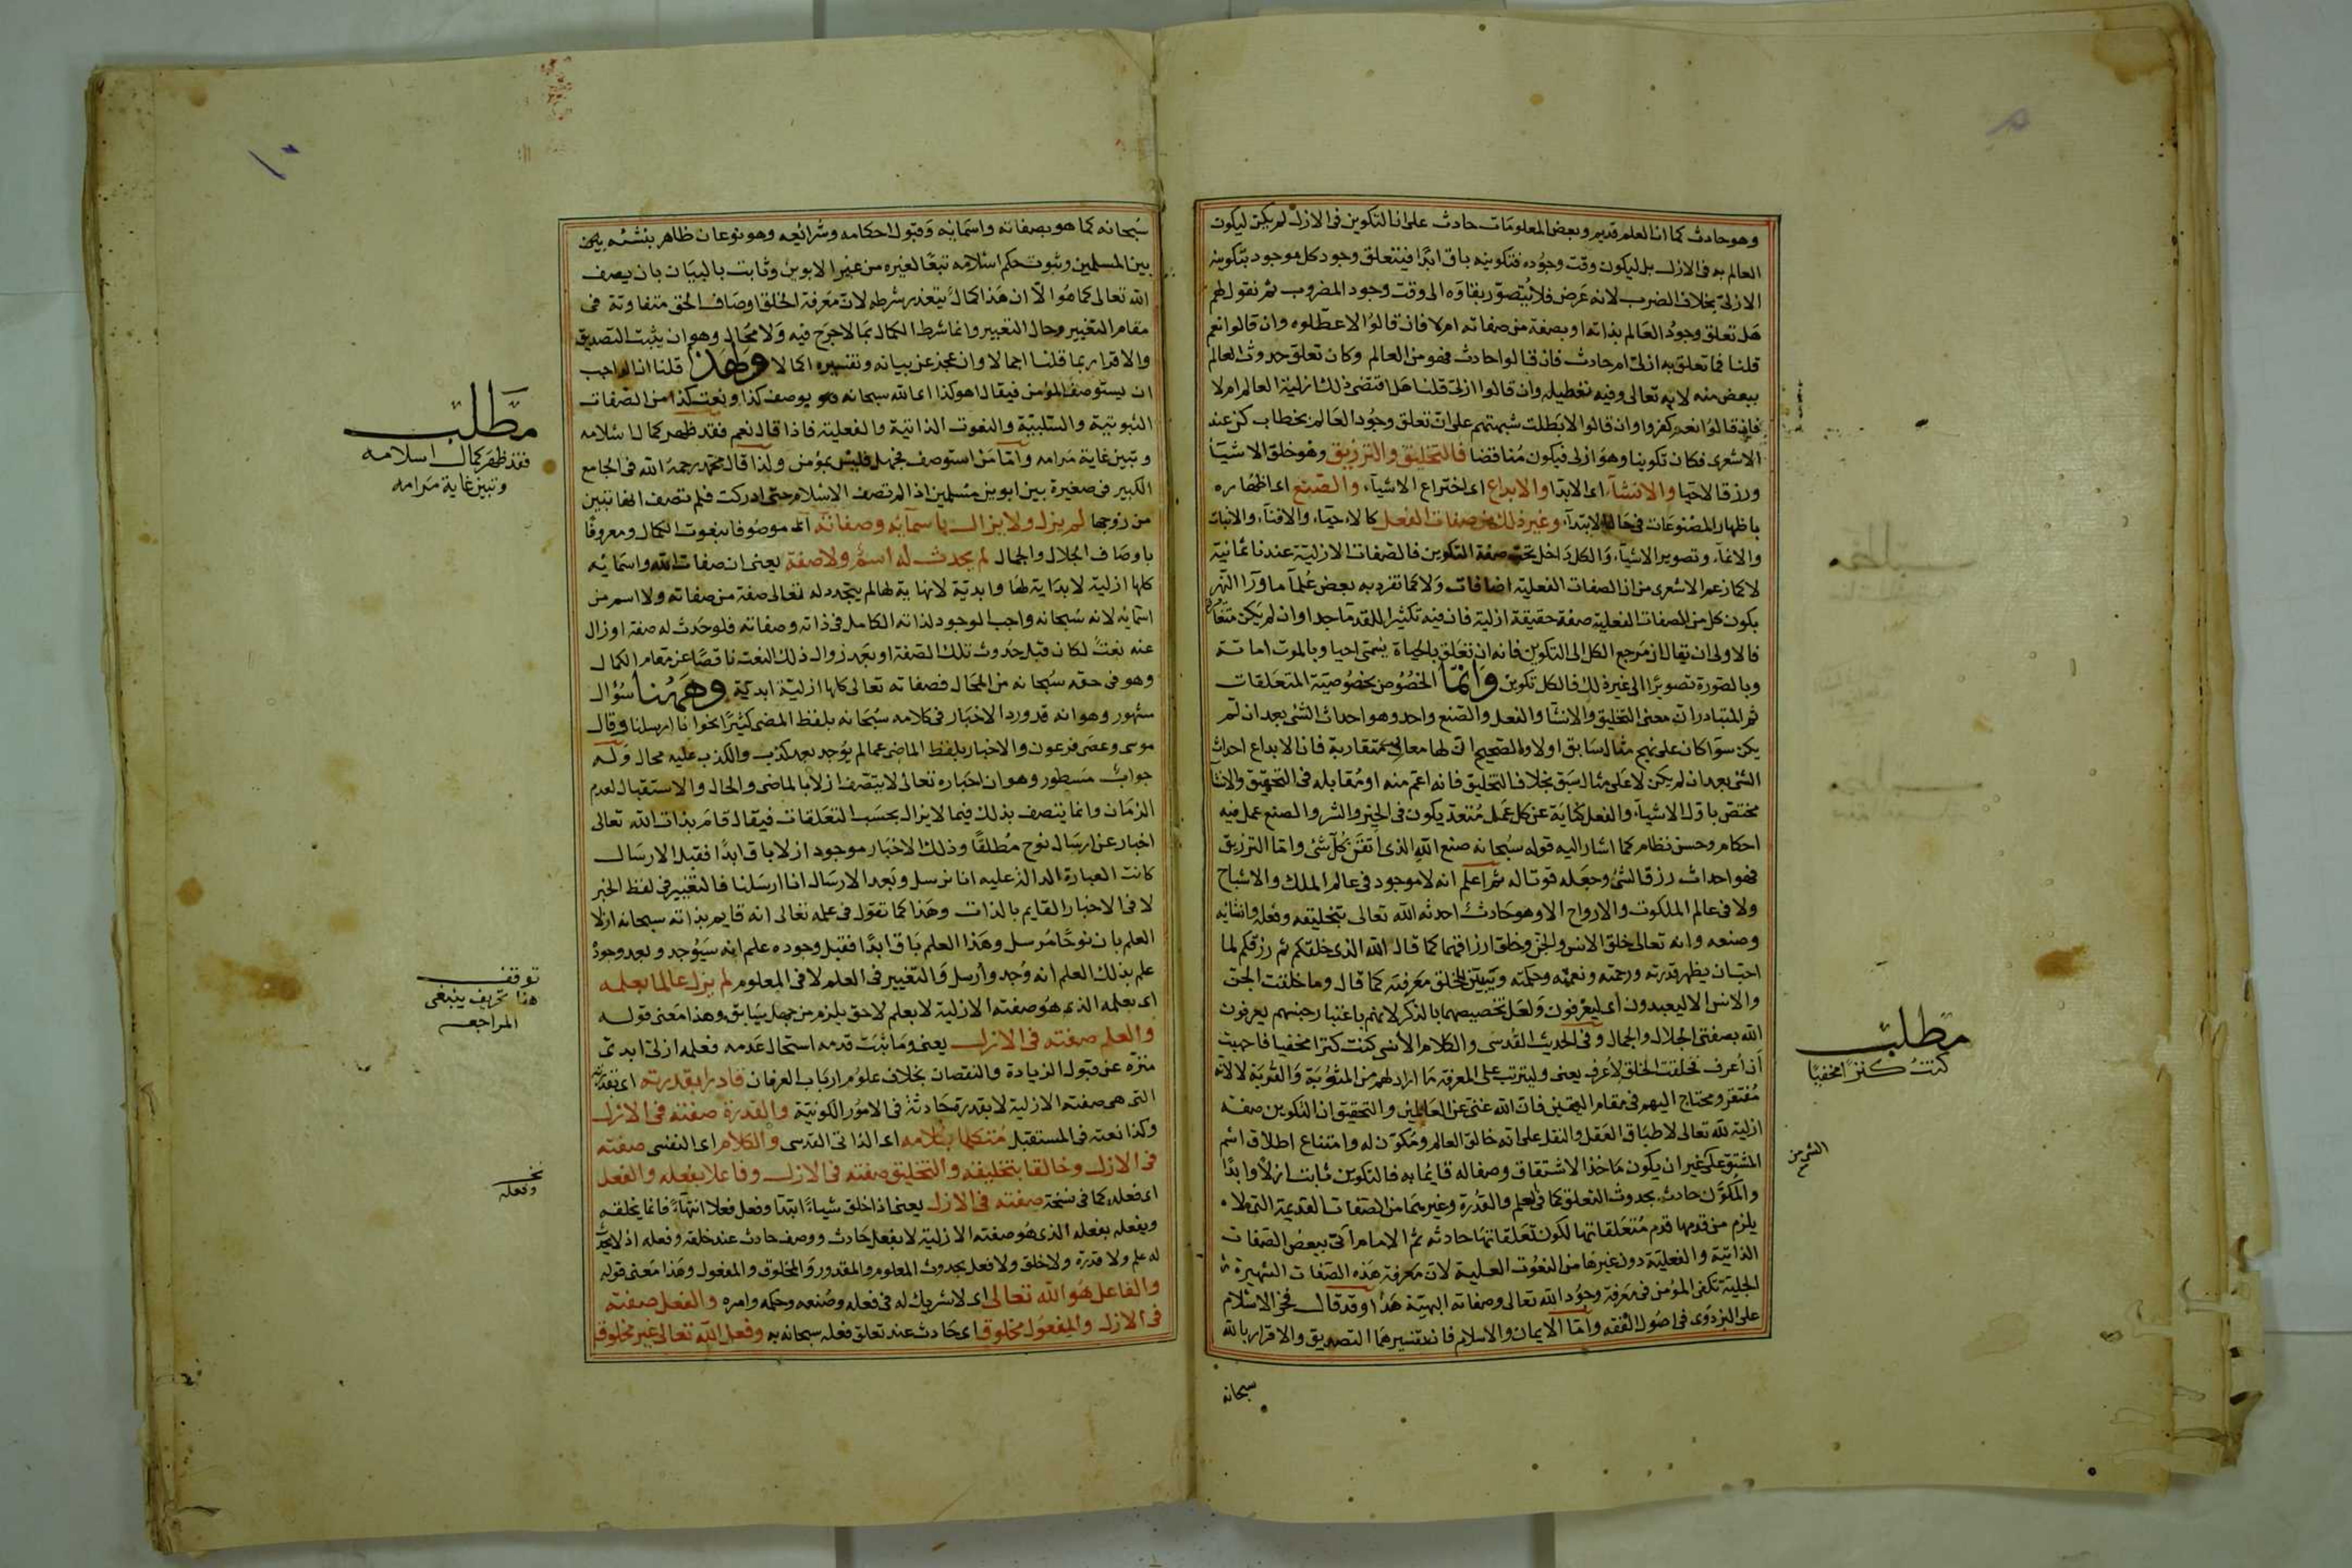 وهو حادث كما ان العلم قديم وبعض المعلومات حادث على ان التكوين فى الازل لم يكن ليكون
العالم به فى الازل بل ليكون وقت وجوده فتكوينه باق ابدا فيتعلق وجود كل موجود بتكوينه
الازلى بخلاف الضرب لانه عرض فلا يتصور بقاؤه الى وقت وجود المضروب ثم نقول لهم
هل تعلق وجود العالم بذاته او بصفة من صفاته ام لا فان قالوا لا عطلوه وان قالوا نعم
قلنا فما تعلق به ازلى ام حادث فان قالوا حادث فهو من العالم وكان تعلق حدوث العالم
ببعض منه لا به تعالى وفيه تعطيله وان قالوا ازلى قلنا هل اقتضى ذلك ازلية العالم ام لا
فان قالوا نعم كفروا وان قالوا لا بطلت شبهتهم على ان تعلق وجود العالم بخطاب كن عند
الاشعرى فكان تكوينا وهو ازلى فيكون مناقضا فالتخليق والترزيق وهو خلق الاشياء
ورزق الاحيا والانشاء اى الابتدا والابداع اى اختراع الاشياء والصنع اى اظهاره
باظهار المصنوعات فى حال الابتداء وغير ذلك من صفات الفعل كالاحياء والافناء والانبات
والانماء وتصوير الاشياء والكل داخل تحت صفة التكوين فالصفات الازلية عندنا ثمانية
لا كما زعم الاشعرى من ان الصفات الفعلية اضافات ولا كما تفرد به بعض علماء ماورا النهر
بكون كل من الصفات الفعلية صفة حقيقة ازلية فان فيه تكثيرا للقدماء جدا وان لم يكن
فالاولى ان يقال ان مرجع الكل الى التكوين فانه ان تعلق بالحياة يسمى احيا وبالموت اماتة
وبالصورة تصويرا الى غير ذلك فالكل تكوين وانما الخصوص بخصوصية المتعلقات
ثم المتبادر ان معنى التخليق والانشا والفعل والصنع واحد وهو احداث الشئ بعد ان لم
يكن سوا كان على نهج مثال سابق اولا والصحيح ان لها معانى متقاربة فان الابداع احداث
الشئ بعد ان لم يكن لا على مثال سبق بخلاف التخليق فانه اعم منه او مقابله فى التحقيق والانشا
مختص باول الاشياء والفعل كناية عن كل عمل متعد يكون فى الخير والشر والصنع عمل فيه
احكام وحسن نظام كما اشار اليه قوله سبحانه صنع الله الذى اتقن كل شئ واما الترزيق
فهو احداث رزق الشئ وجعله قوتا له ثم اعلم انه لا موجود فى عالم الملك والاشباح
ولا فى عالم الملكوت والارواح الا وهو حادث احدثه الله تعالى بتخليقه وفعله وانشائه
وصنعه وانه تعالى خلق الانس والجن وخلق ارزاقهما كما قال الله الذى خلقكم ثم رزقكم لما
احب ان يظهر قدرته ورحمته ونعمته وحكمته ويتبين للخلق معرفته كما قال وما خلقت الجن
والانس الا ليعبدون اى ليعرفون ولعل تخصيصهما بالذكر لانهم باعتبار جنسهم يعرفون
الله بصفتى الجلال والجمال وفى الحديث القدسى والكلام الانسى كنت كنزا مخفيا فاحببت
ان اعرف فخلقت الخلق لاعرف يعنى وليترتب على المعرفة ما اراد لهم من المثوبة والقربة لا لانه
مفتقر ومحتاج اليهم فى مقام اليقين فان الله غنى عن العالمين والتحقيق ان التكوين صفة
ازلية لله تعالى لاطباق العقل والنقل على انه خالق العالم ومكون له وامتناع اطلاق اسم
المشتق على غير ان يكون ماخذ الاشتقاق وصفا له قائما به فالتكوين ثابت ازلا وابدا
والمكون حادث بحدوث التعلق كما فى العلم والقدرة وغيرهما من الصفات القديمة التى لا
يلزم من قدمها قدم متعلقاتها لكون تعلقاتها حادثة ثم الامام اتى ببعض الصفات
الذاتية والفعلية دون غيرها من النعوت العلية لان معرفة هذه الصفات الشهيرة
الجلية تكفى المؤمن فى معرفة وجود الله تعالى وصفاته البهية هذا وقد قال فخر الاسلام
على البزدوى فى اصول الفقه واما الايمان والاسلام فان تفسيرهما التصديق والاقرار بالله
سبحانه
مطلب
كنت كنزا مخفيا
سبحانه كما هو بصفاته واسمائه وقبول احكامه وشرائعه وهو نوعان ظاهر بنشئه بين
بين المسلمين وثبوت حكم اسلامه تبعا لغيره من غير الابوين وثابت بالبيان بان يصف
الله تعالى كما هو الا ان هذا كمال يتعذر شرطه لان معرفة الخلق اوصاف الحق متفاوتة فى
مقام التغيير وحال التعبير وانما شرط الكمال بما لا حرج فيه ولا محال وهو ان يثبت التصديق
والاقرار بما قلنا اجمالا وان عجز عن بيانه وتفسيره اكمالا ولهذا قلنا ان الواجب
ان يستوصف المؤمن فيقال اهو كذا اى الله سبحانه هو يوصف كذا وينعت كذا من الصفات
الثبوتية والسلبية والنعوت الذاتية والفعلية فاذا قال نعم فقد ظهر كمال اسلامه
وتبين غاية مرامه واما من استوصف فجهل فليس بمؤمن ولذا قال محمد رحمه الله فى الجامع
الكبير فى صغيرة بين ابوين مسلمين اذا لم تصف الاسلام حتى ادركت فلم تصف انها تبين
من زوجها لم يزل ولا يزال باسمائه وصفاته اى موصوفا بنعوت الكمال ومعروفا
باوصاف الجلال والجمال لم يحدث له اسم ولا صفة يعنى ان صفات الله واسمائه
كلها ازلية لا بداية لها وابدية لا نهاية لها لم يتجدد له تعالى صفة من صفاته ولا اسم من
اسمائه لانه سبحانه واجب الوجود لذاته الكامل فى ذاته وصفاته فلو حدث له صفة او زال
عنه نعت لكان قبل حدوث تلك الصفة او بعد زوال ذلك النعت ناقصا عن مقام الكمال
وهو فى حقه سبحانه من المحال فصفاته تعالى كلها ازلية ابدية وههنا سؤال
مشهور وهو انه قد ورد الاخبار فى كلامه سبحانه بلفظ المضى كثيرا نحو انا ارسلنا وقال
موسى وعصى فرعون والاخبار بلفظ الماضى عما لم يوجد بعد كذب والكذب عليه محال وله
جواب مسطور وهو ان اخباره تعالى لا يتصف ازلا بالماضى والحال والاستقبال لعدم
الزمان وانما يتصف بذلك فيما لا يزال بحسب التعلقات فيقال قام بذات الله تعالى
اخبار عن ارسال نوح مطلقا وذلك الاخبار موجود ازلا باق ابدا فقبل الارسال
كانت العبارة الدالة عليه انا نرسل وبعد الارسال انا ارسلنا فالتغيير فى لفظ الخبر
لا فى الاخبار القايم بالذات وهذا كما تقول فى علمه تعالى انه قايم بذاته سبحانه ازلا
العلم بان نوحا مرسل وهذا العلم باق ابدا فقبل وجوده علم انه سيوجد وبعد وجوده
علم بذلك العلم انه وجد وارسل والتغيير فى العلم لا فى المعلوم لم يزل عالما بعلمه
اى بعلمه الذى هو صفته الازلية لا بعلم لاحق يلزم من جهل سابق وهذا معنى قوله
والعلم صفته فى الازل يعنى وما ثبت قدمه استحال عدمه فعلمه ازلى ابدى
منزه عن قبول الزيادة والنقصان بخلاف علوم ارباب العرفان قادرا بقدرته اى بقدرته
التى هى صفته الازلية لا بقدرة حادثة فى الامور الكونية والقدرة صفته فى الازل
وكذا نعته فى المستقبل متكلما بكلامه اى الذاتى القدسى والكلام اى النفسى صفته
فى الازل وخالقا بتخليقه والتخليق صفته فى الازل وفاعلا بفعله والفعل
اى فعله كما فى نسخة صفته فى الازل يعنى اذا خلق شيئا ابتداء وفعل فعلا انتهاء فانما يخلقه
ويفعله بفعله الذى هو صفته الازلية لا بفعل حادث ووصف حادث عند خلقه وفعله اذ لا يحدث
له علم ولا قدرة ولا خلق ولا فعل بحدوث المعلوم والمقدور والمخلوق والمفعول وهذا معنى قوله
والفاعل هو الله تعالى اى لا شريك له فى فعله وصنعه وحكمه وامره والفعل صفته
فى الازل والمفعول مخلوق اى حادث عند تعلق فعله سبحانه به وفعل الله تعالى غير مخلوق
مطلب
فقد ظهر كمال اسلامه
وتبين غاية مرامه
توقف
هذا تحريف ينبغى
المراجعه
وفعله
١٠